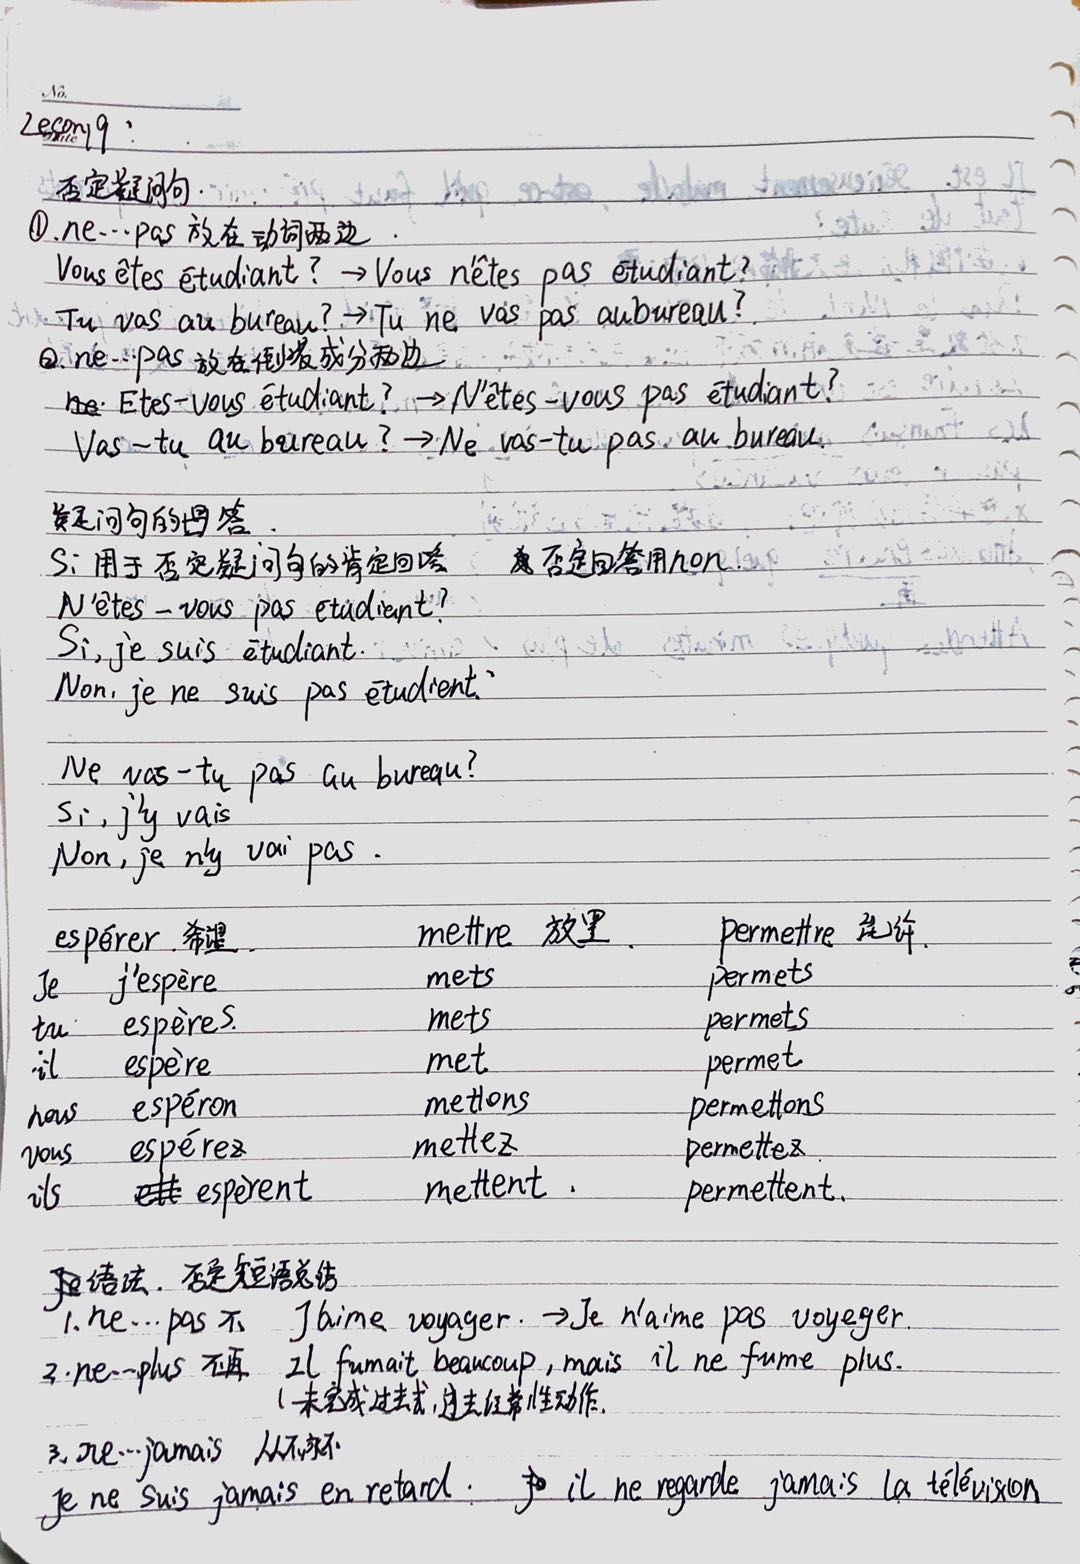 No.
Leçon 19:
否定疑问句.
①.ne…pas 放在动词两边.
Vous êtes étudiant? → Vous n'êtes pas étudiant?
Tu vas au bureau? → Tu ne vas pas au bureau?
②.ne…pas 放在倒装成分两边
Etes-vous étudiant? → N'êtes-vous pas étudiant?
Vas-tu au bureau? → Ne vas-tu pas au bureau.
疑问句的回答.
Si 用于否定疑问句的肯定回答 否定回答用non.
N'êtes-vous pas etudient?
Si, je suis étudiant.
Non, je ne suis pas étudient.
Ne vas-tu pas au bureau?
Si, j'y vais
Non, je n'y vai pas.
espérer 希望. mettre 放置. permettre 允许.
Je j'espère mets permets
tu espères. mets permets
il espère met permet
nous espéron mettons permettons
vous espérez mettez permettez.
ils espèrent mettent. permettent.
语法. 否定短语总结
1. ne…pas 不 J'aime voyager. → Je n'aime pas voyeger.
2. ne…plus 不再 Il fumait beaucoup, mais il ne fume plus.
未完成过去式,过去经常性动作.
3. ne…jamais 从不,永不
Je ne suis jamais en retard. il ne regarde jamais la télévision